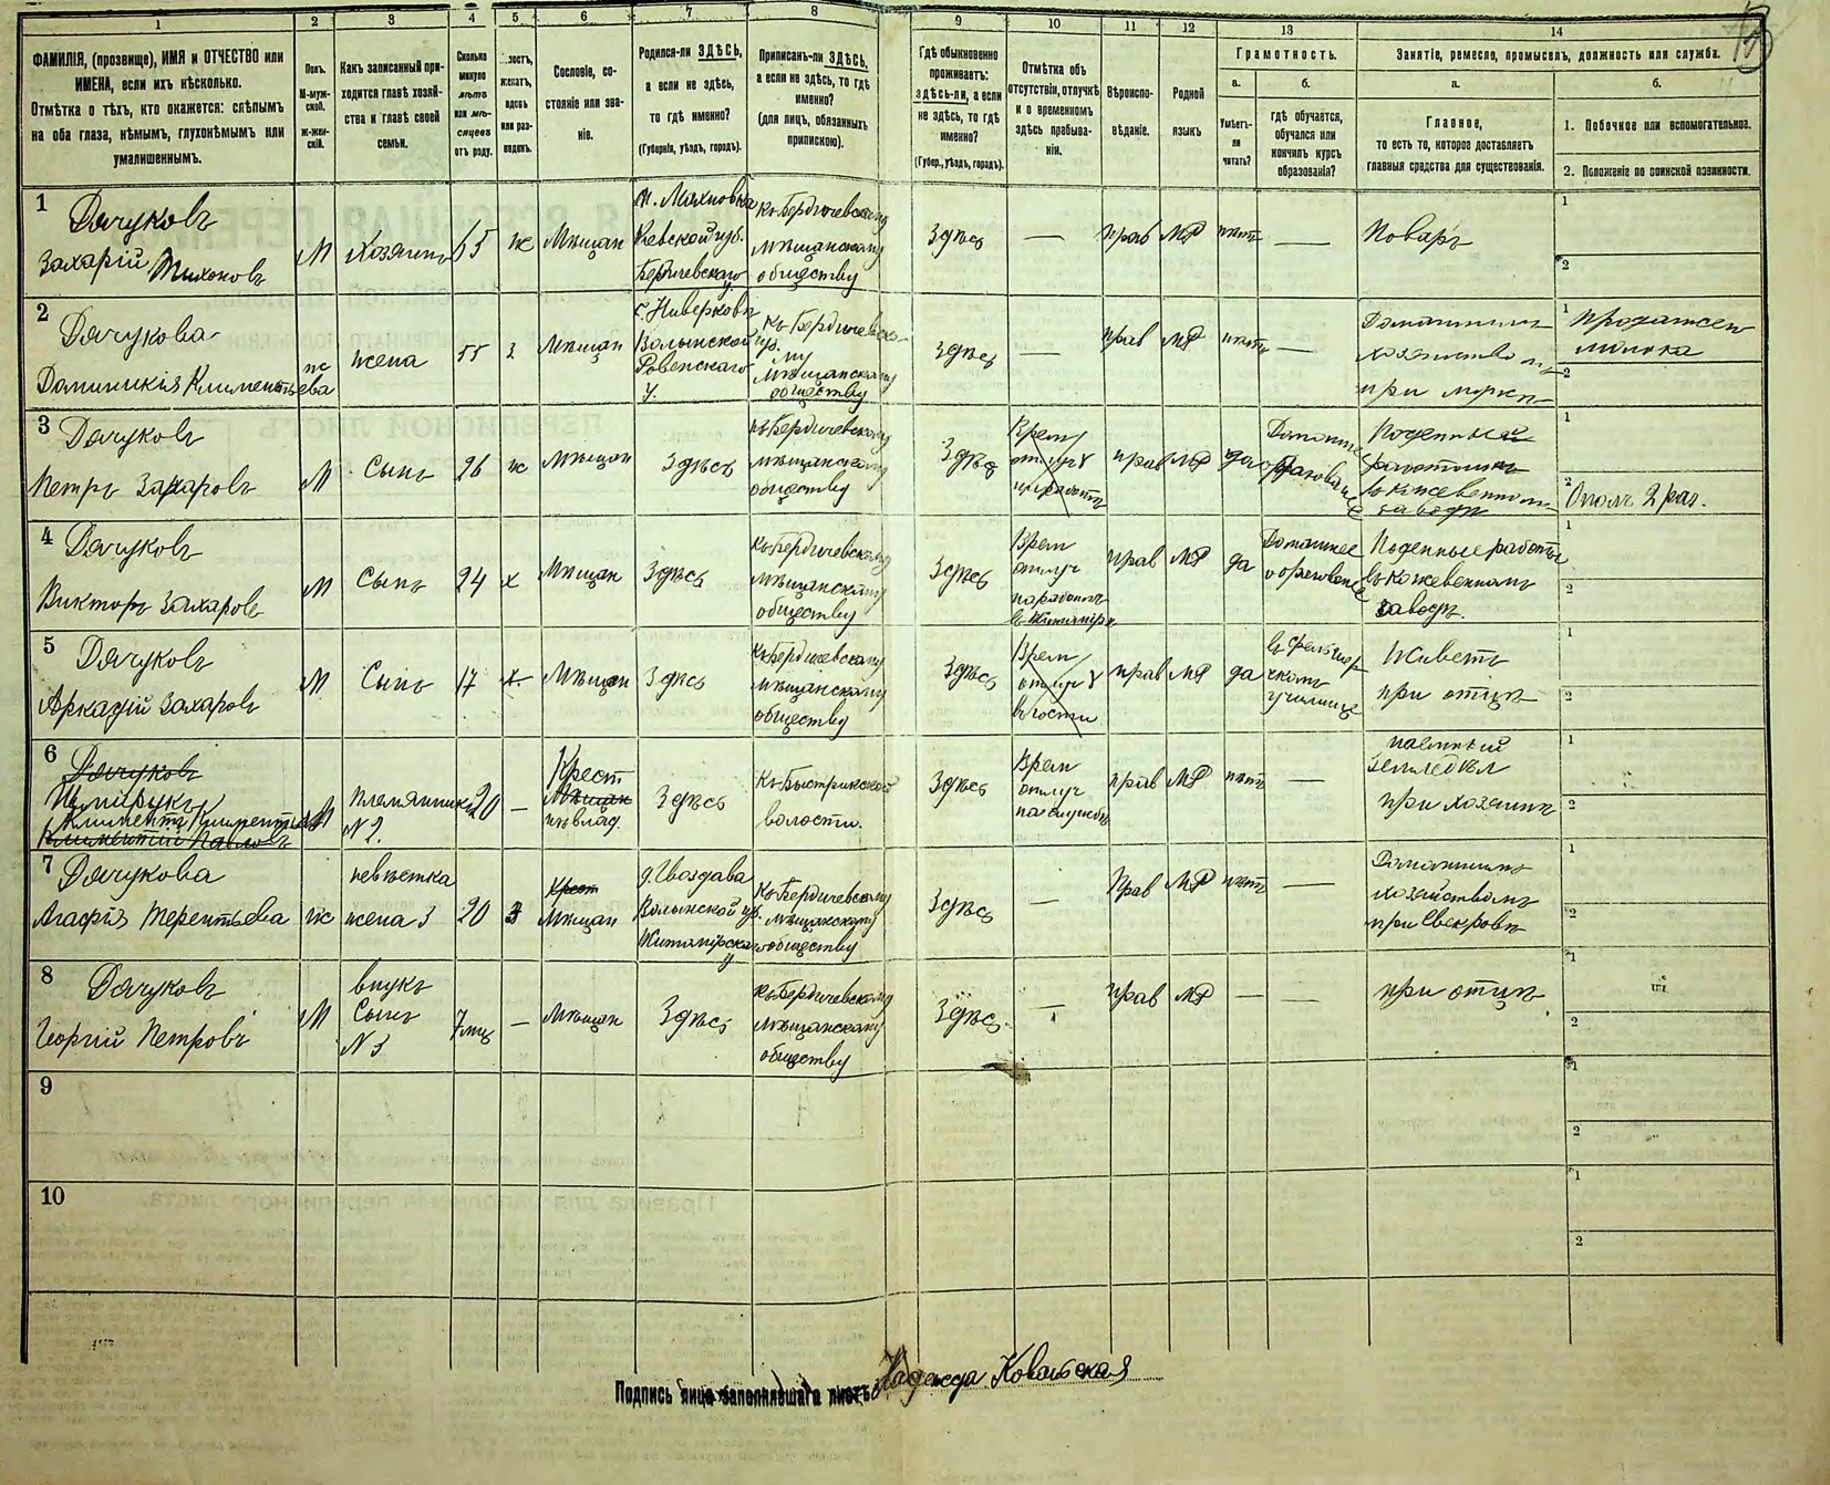 1 2 3 4 5 6 7 8 9 10 11 12 13 14
ФАМИЛІЯ, (прозвище), ИМЯ и ОТЧЕСТВО или
ИМЕНА, если ихъ нѣсколько.
Отмѣтка о тѣхъ, кто окажется: слѣпымъ
на оба глаза, нѣмымъ, глухонѣмымъ или
умалишеннымъ.
Полъ.
М-муж-
ской.
ж-жен-
скій.
Какъ записанный при-
ходится главѣ хозяй-
ства и главѣ своей
семьи.
Сколько
минуло
лѣтъ
или мѣ-
сяцевъ
отъ роду.
женатъ,
вдовъ
или раз-
веденъ.
Сословіе, со-
стояніе или зва-
ніе.
Родился-ли ЗДѢСЬ,
а если не здѣсь,
то гдѣ именно?
(Губернія, уѣздъ, городъ).
Приписанъ-ли ЗДѢСЬ,
а если не здѣсь, то гдѣ
именно?
(для лицъ, обязанныхъ
припискою).
Гдѣ обыкновенно
проживаетъ:
здѣсь-ли, а если
не здѣсь, то гдѣ
именно?
(Губер., уѣздъ, городъ).
Отмѣтка объ
отсутствіи, отлучкѣ
и о временномъ
здѣсь пребыва-
ніи.
Вѣроиспо-
вѣданіе.
Родной
языкъ
Грамотность.
а.
Умѣетъ-
ли
читать?
б.
гдѣ обучается,
обучался или
кончилъ курсъ
образованія?
Занятіе, ремесло, промыселъ, должность или служба.
а.
Главное,
то есть то, которое доставляетъ
главныя средства для существованія.
б.
1. Побочное или вспомогательное.
2. Положеніе по воинской повинности.
1
Дячуковъ
Захарій Тихоновъ
М
Хозяинъ
65
ж
Мѣщан
м. Махновка
Кіевской губ.
Бердичевскаго
у.
Къ Бердичевскому
мѣщанскому
обществу
Здѣсь
—
прав
МР
нѣтъ
—
Поваръ
1
2
2
Дячукова
Доминикія Климентьева
ж
жена
55
з
Мѣщан
Волынской губ.
Ровенскаго
у.
Къ Бердичевско-
му
мѣщанскому
обществу
Здѣсь
прав
МР
нѣтъ
—
Домашнимъ
при мужѣ
1 продажею
молока
2
3
Дячуковъ
Петръ Захаровъ
М
Сынъ
26
ж
Мѣщан
Здѣсь
Къ Бердичевскому
мѣщанскому
обществу
Здѣсь
Врем
отлуч
прав
МР
да
Поденный
работникъ
въ кожевенномъ
заводѣ
1
2
Ополч. 2 раз.
4
Дячуковъ
Викторъ Захаровъ
М
Сынъ
24
х
Мѣщан
Здѣсь
Къ Бердичевскому
мѣщанскому
обществу
Здѣсь
Врем
отлуч
прав
МР
да
Домашнее
образованіе
Поденные работы
въ кожевенномъ
заводѣ.
1
2
5
Дячуковъ
Аркадій Захаровъ
М
Сынъ
17
х
Мѣщан
Здѣсь
Къ Бердичевскому
мѣщанскому
обществу
Здѣсь
Врем
отлуч
въ гости
прав
МР
да
въ фельдшер
скомъ
училище
Живетъ
при отцѣ
1
2
6
Дячуковъ
М
племянникъ
N 2.
20
—
Крест
Мѣщан
из влад.
Здѣсь
волости.
Здѣсь
Врем
отлуч
на службѣ
прав
МР
нѣтъ
—
при хозяинѣ
1
2
7
Дячукова
Агафія Терентьева
ж
невѣстка
жена 3
20
з
Крест
Мѣщан
Волынской губ.
Житомірскаго
у
Къ Бердичевскому
мѣщанскому
обществу
Здѣсь
—
Прав
МР
нѣтъ
—
Домашнимъ
хозяйствомъ
при Свекрови
1
2
8
Дячуковъ
Георгій Петровъ
М
внукъ
Сынъ
N 3
7 мц
—
Мѣщан
Здѣсь
Къ Бердичевскому
мѣщанскому
обществу
Здѣсь.
—
прав
МР
—
—
при отцѣ
1
2
9
1
2
10
1
2
Подпись лица заполнявшаго листъ Надежда Ковальская